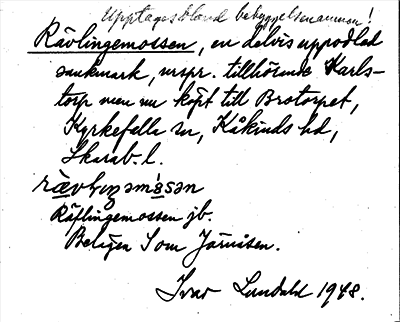 Upptages bland bebyggelsenamnen!
Rävlingemossen, en delvis uppodlad
sankmark, urspr. tillhörande Karls-
torp men nu köpt till Brotorpet,
Kyrkefalla sn, Kåkinds hd,
Skarab. l.
Räflingemossen jb.
Belägen Som
Ivar Lundahl 1948.